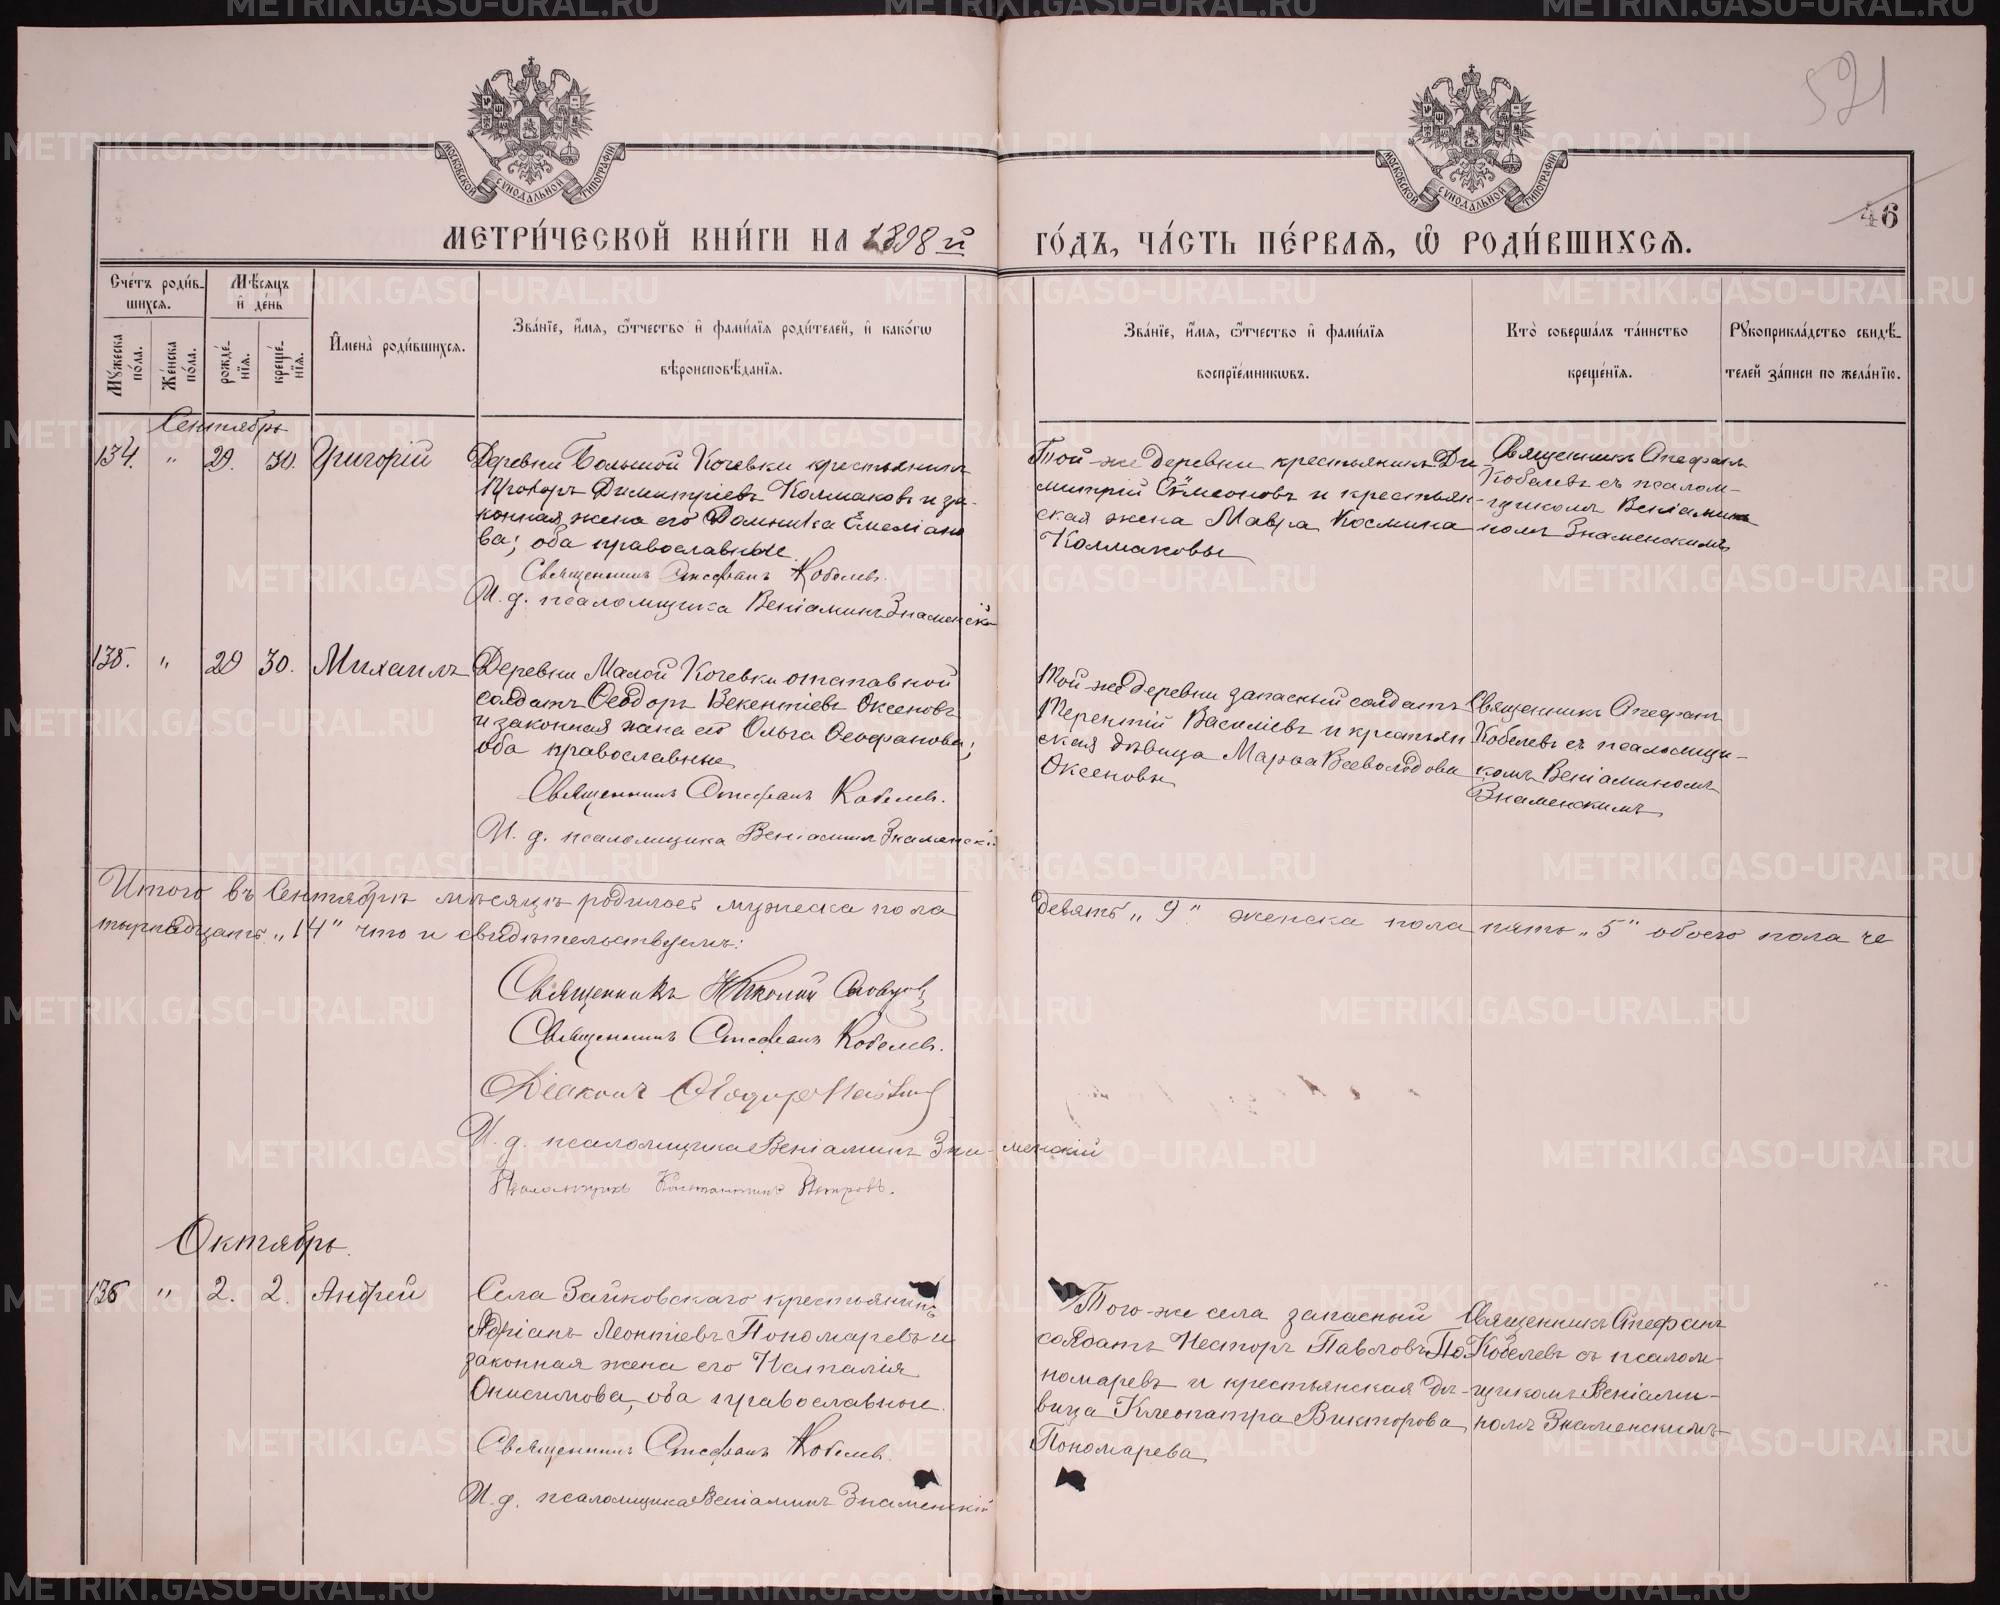 521
46
МОСКОВСКОЙ СѴНОДАЛЬНОЙ ТИПОГРАФІИ
МОСКОВСКОЙ СѴНОДАЛЬНОЙ ТИПОГРАФІИ
МЕТРИ́ЧЕСКОЙ КНИ́ГИ НА 1898 й
ГО́ДЪ, ЧА́СТЬ ПЕ́РВАѦ, Ѡ҆ РОДИ́ВШИХСѦ.
Сче́тъ роди́в-
шихсѧ.
Мѣ́сѧцъ
и҆ де́нь
Мꙋ́жеска по́ла.
Же́нска по́ла.
рожде́-
нїѧ.
креще́-
нїѧ.
И҆мена̀ роди́вшихсѧ.
Зва́нїе, и҆́мѧ, ѻ҆́тчество и҆ фами́лїѧ роди́телей, и҆ како́гѡ
вѣроисповѣ́данїѧ.
Зва́нїе, и҆́мѧ, ѻ҆́тчество и҆ фами́лїѧ
воспрїе́мникѡвъ.
Кто̀ соверша́лъ та́инство
креще́нїѧ.
Рꙋкоприкла́дство свидѣ́-
телей за́писи по жела́нїю.
Сентябрь
134. " 29. 30. Григорій
Деревни Большой Кочевки крестьянинъ
Провъ Димитріевъ Колмаковъ и за-
конная жена его Домника Емеліано
ва; оба православные.
Священникъ Стефанъ Кобелевъ.
И. д. псаломщика Веніаминъ Знаменскій
Той-же деревни крестьянинъ Ди
митрій Сѵмеоновъ и крестьян-
ская жена Мавра Космина
Колмаковы
Священникъ Стефанъ
Кобелевъ съ псалом-
щикомъ Веніами
номъ Знаменскимъ
135. " 29 30. Михаилъ
Деревни Малой Кочевки отставной
солдатъ Ѳеодоръ Векентіевъ Оксеновъ
и законная жена его Ольга Ѳеофанова;
оба православные
Священникъ Стефанъ Кобелевъ.
И. д. псаломщика Веніаминъ Знаменскій
Той-же деревни запасный солдатъ
Терентій Василіевъ и крестьян
ская дѣвица Марѳа Всеволодова
Оксеновы
Священникъ Стефанъ
Кобелевъ съ псаломщи-
комъ Веніаминомъ
Знаменскимъ
Итого въ Сентябрѣ мѣсяцѣ родилось мужеска пола
девять „9" женска пола пять „5" обоего пола че
тырнадцать „14" что и свидѣтельствуемъ:
Священникъ Николай Словцовъ
Священникъ Стефанъ Кобелевъ.
Діаконъ
И. д. псаломщика Веніаминъ Знаменскій
Псаломщикъ Константинъ Петровъ.
Октябрь.
136 " 2. 2. Андрей
Села Зайковскаго крестьянинъ
Адріанъ Леонтіевъ Пономаревъ и
законная жена его Наталія
Онисимова, оба православные.
Священникъ Стефанъ Кобелевъ.
И. д. псаломщика Веніаминъ Знаменскій
Того-же села запасный
солдатъ Несторъ Павловъ По
номаревъ и крестьянская дѣ-
вица Клеопатра Викторова
Пономарева
Священникъ Стефанъ
Кобелевъ съ псалом-
щикомъ Веніами-
номъ Знаменскимъ
METRIKI.GASO-URAL.RU